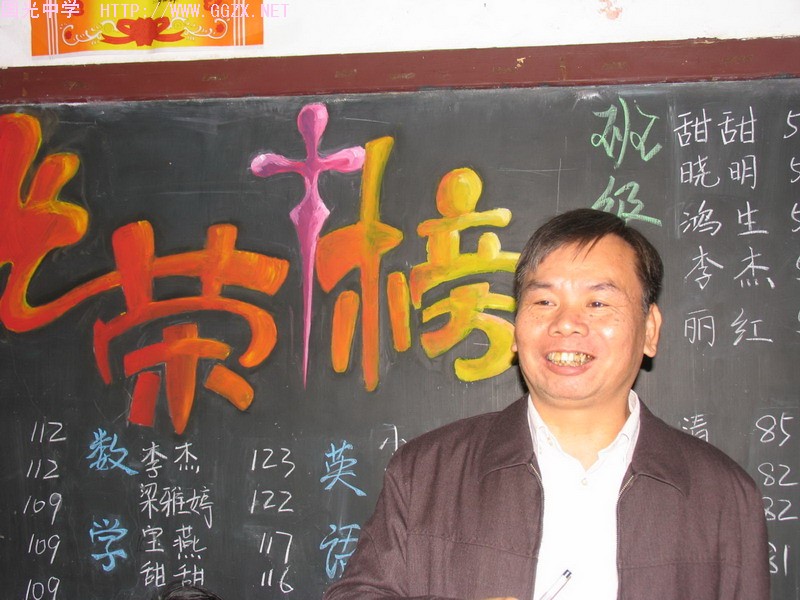 HTTP://WWW.GGZX.NET
光荣榜
班级
甜甜 5
晓明 5
鸿生 5
李杰
丽红
数学
英语
112 李杰 123
112 梁雅婷 122
109 宝燕 117
109 甜甜 116
109
清 85
82
82
81